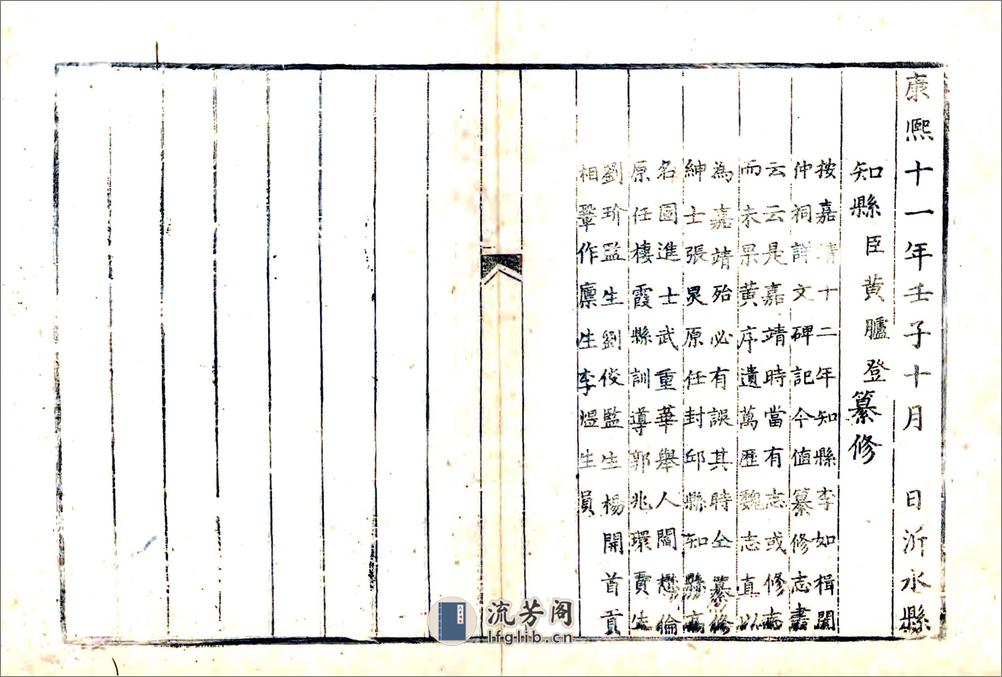 康熙十一年壬子十月　日沂水縣
知縣臣黃臚登纂修
按嘉靖十二年知縣李如楫閔
仲祠詳文碑記今值纂修志書
云云是嘉靖時當有志或修志
而未果黃序遺萬歷魏志直以
為嘉靖殆必有誤其時仝纂修
紳士張炅原任封邱縣知縣高
名圖進士武重華舉人閻懋倫
原任棲霞縣訓導郭兆環貢生
劉玠監生劉俊監生楊開首貢
相鞏作廩生李煜生員
流芳阁
lfglib.cn